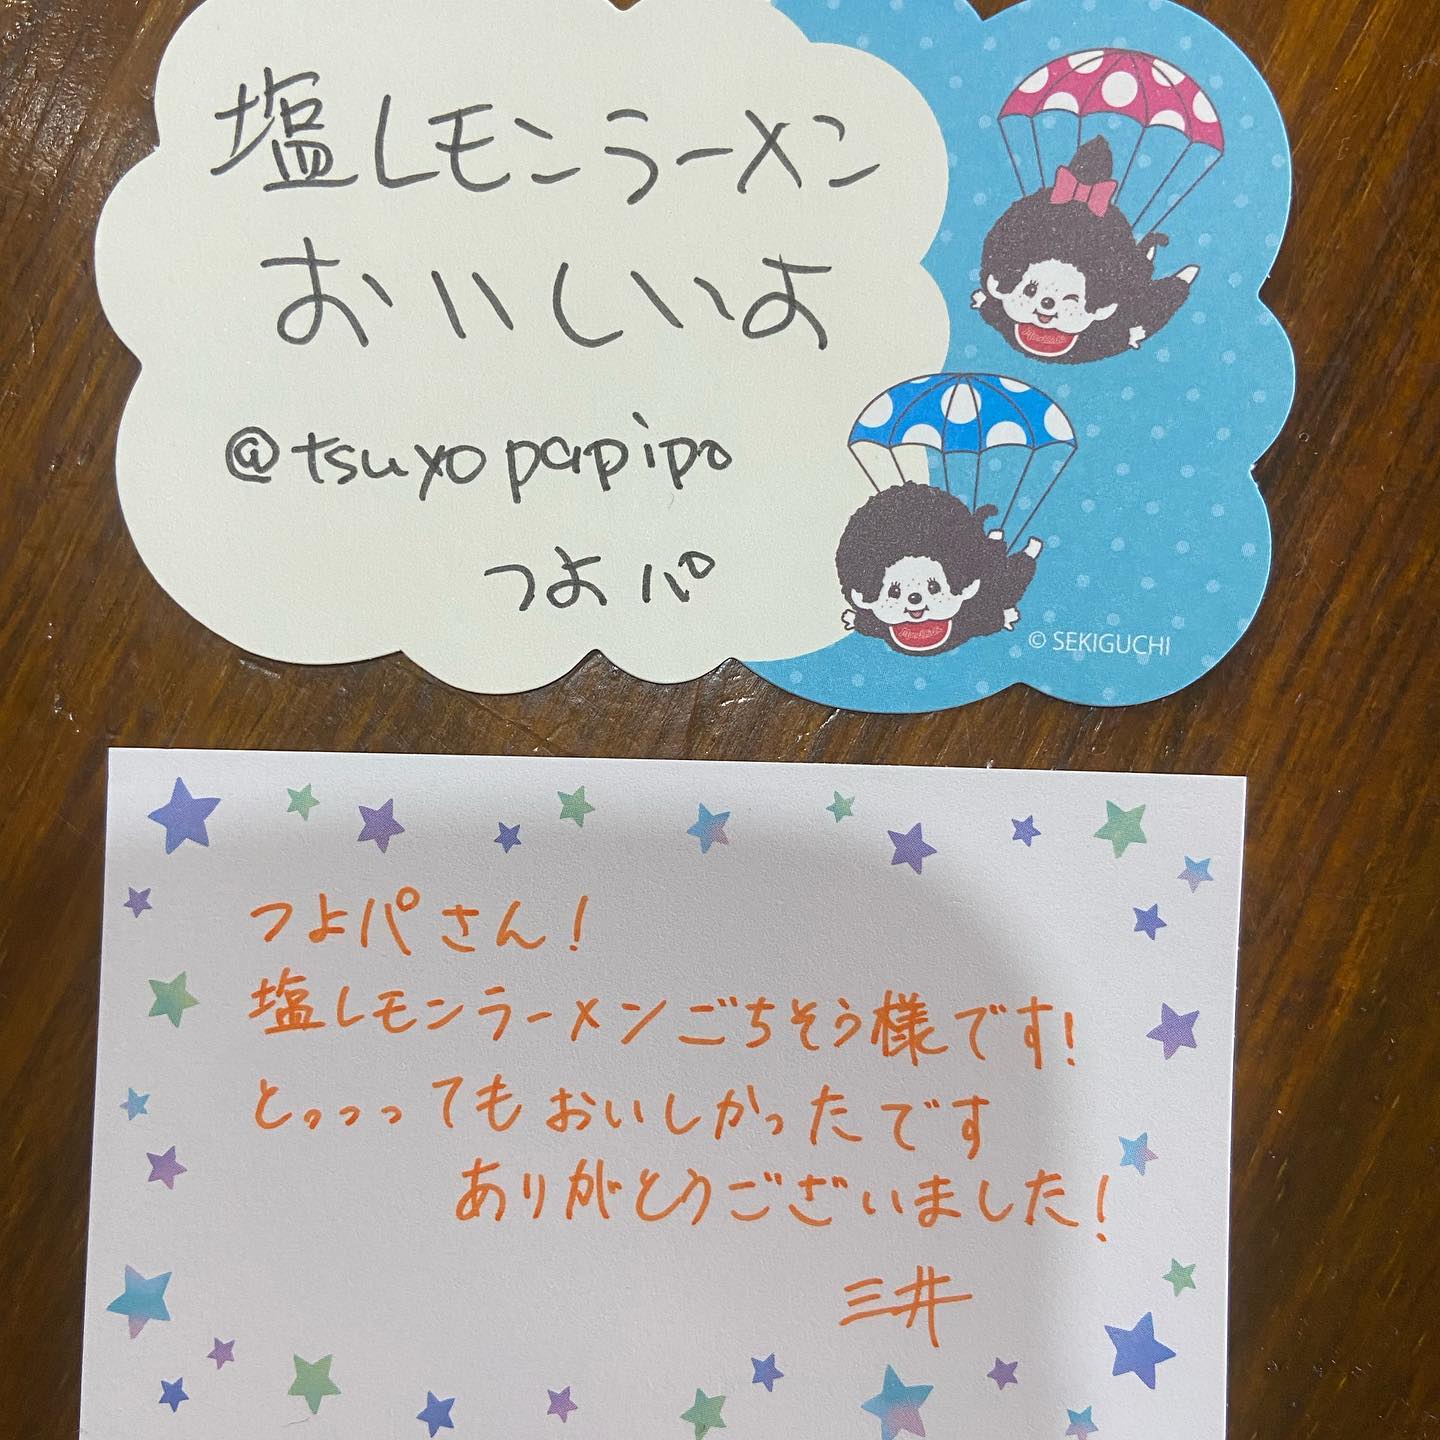 塩レモンラーメン
おいしいよ
@tsuyopapipo
つよパ
© SEKIGUCHI
つよパさん！
塩レモンラーメンごちそう様です！
とっっってもおいしかったです
ありがとうございました！
三井